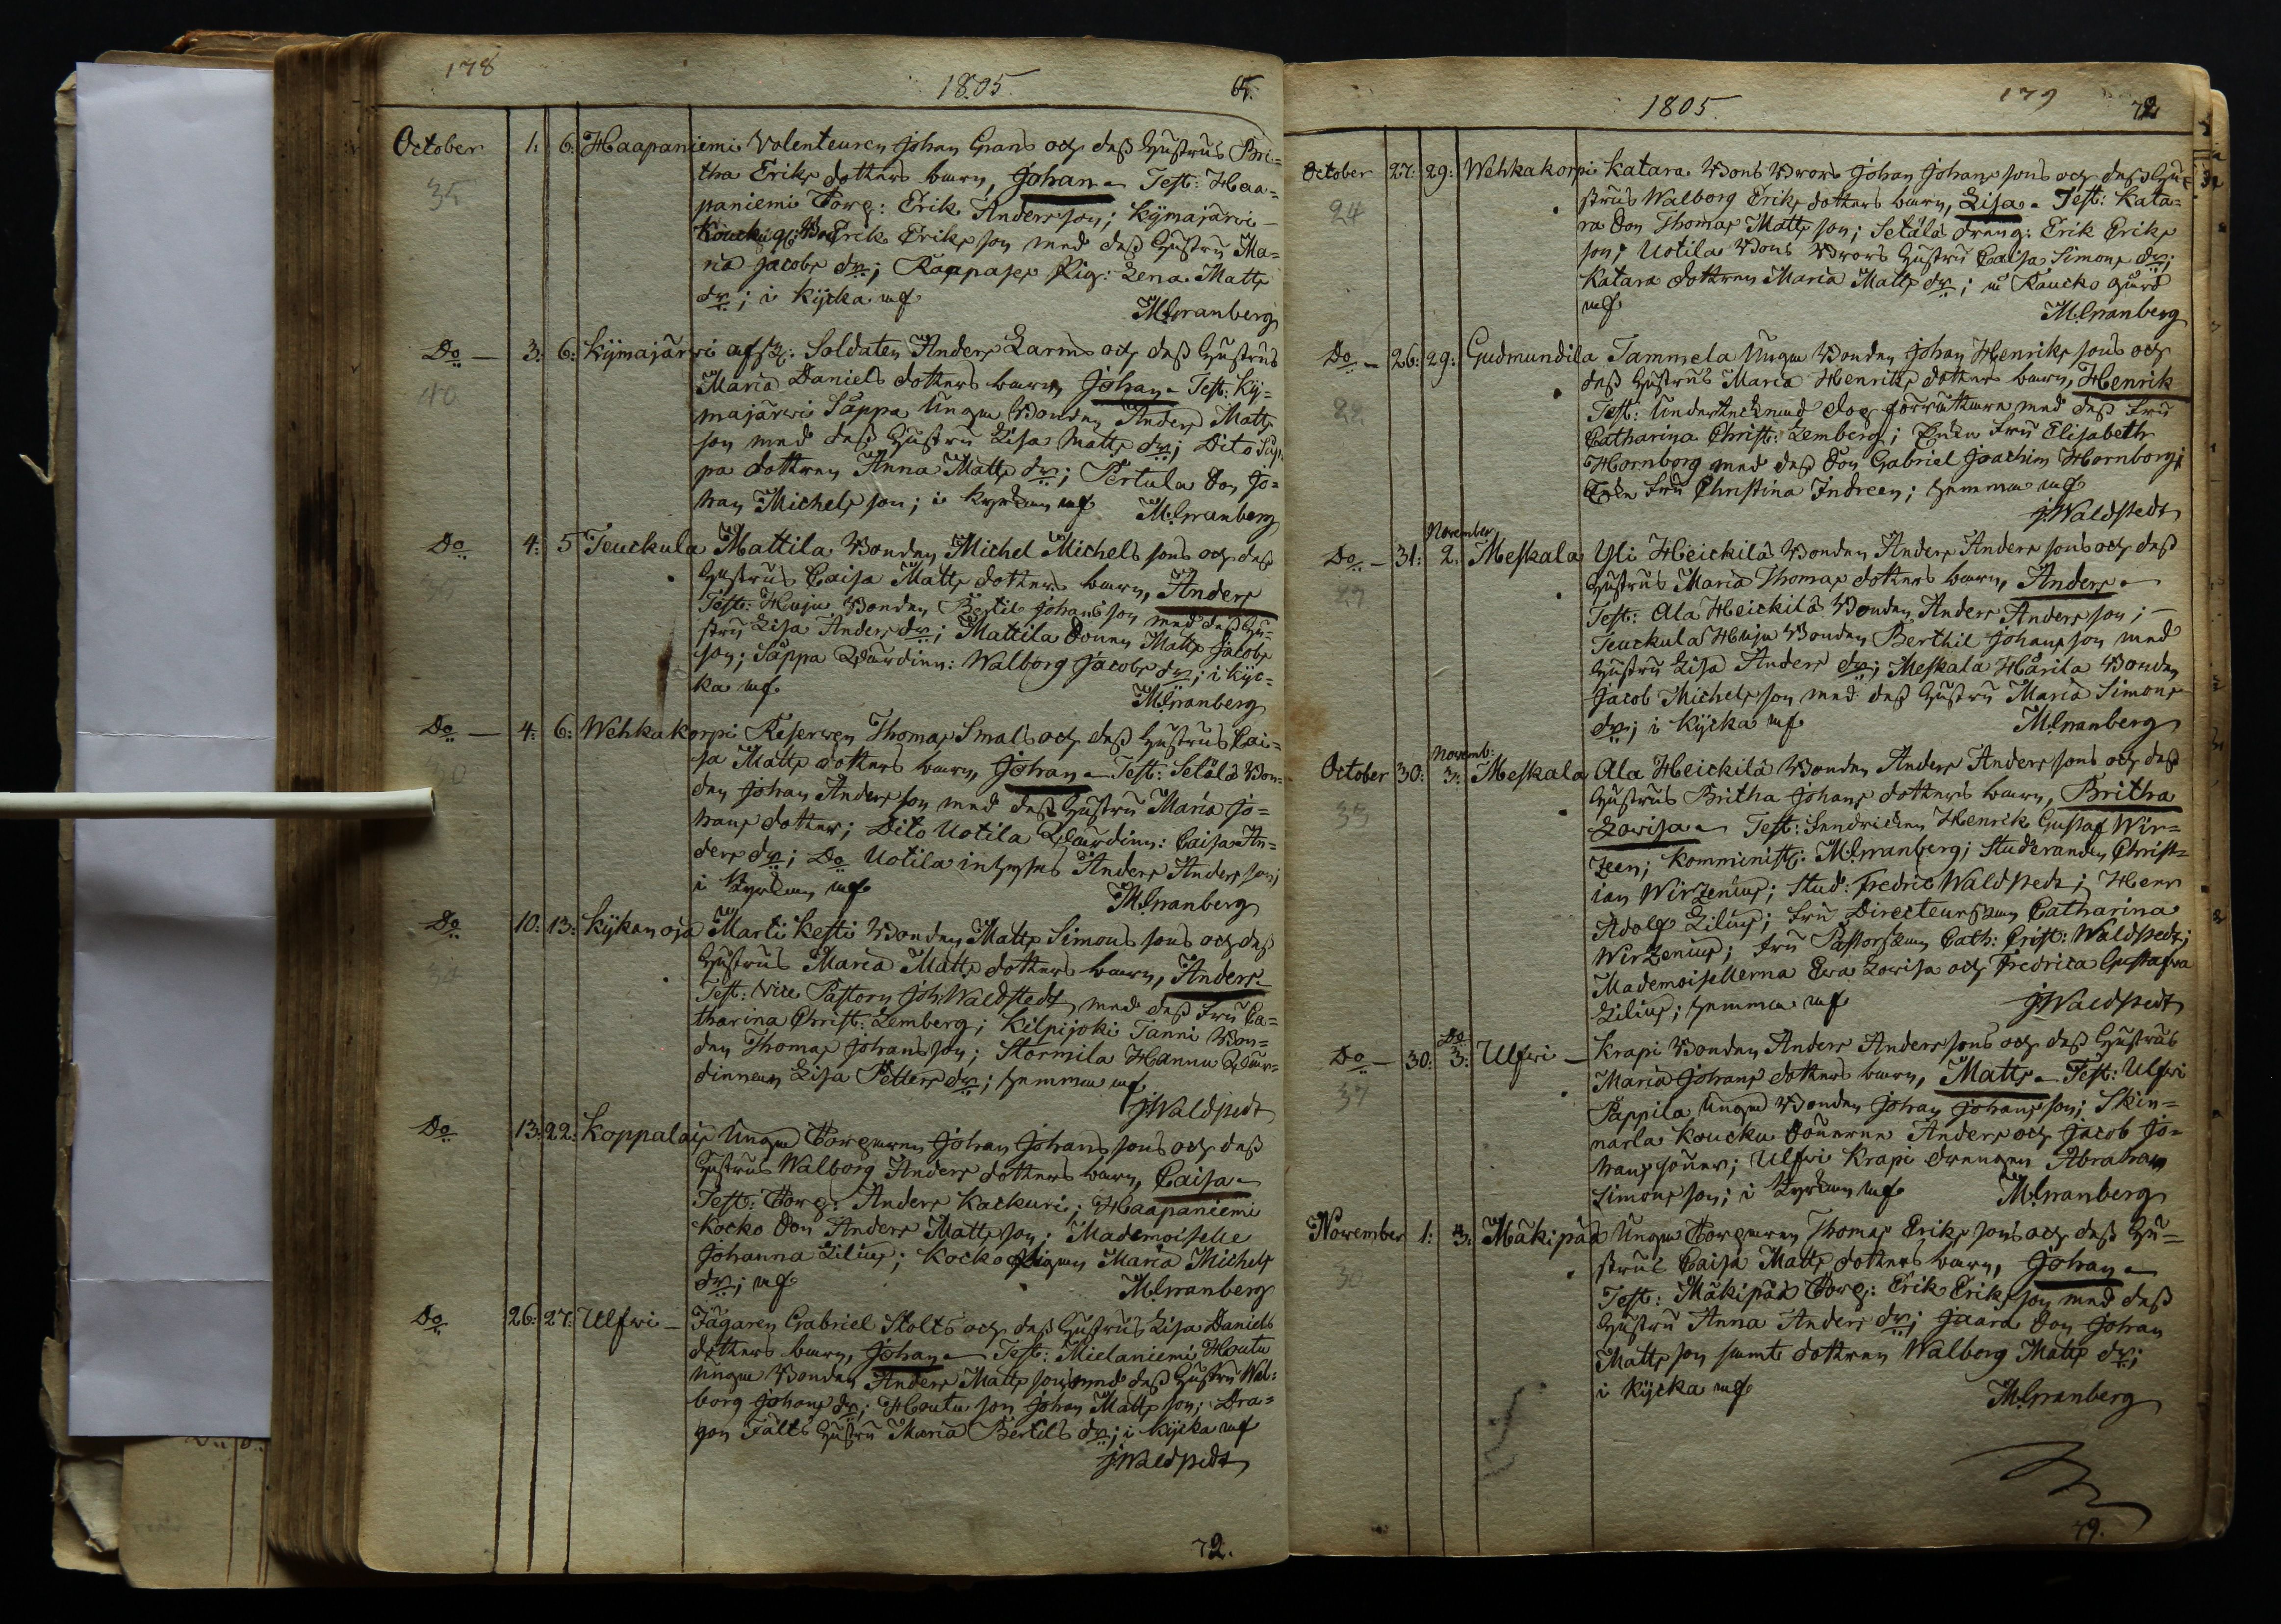 178
1805.
65.
October 1: 6: Haapaniemi Volenteuren Johan Grans och dess Hustrus Bri=
35 tha Eriks dotters barn, Johan - Test: Haa=
paniemi Torp: Erik Andersson; Kÿmajärvi -
Koucku Bond. Erik Eriks son med dess Hustru Ma=
ria Jacobs dr; Raapases Pig: Lena Matts
dr; i Kÿcka mf
M:Granberg
Do - 3: 6: Kÿmajärvi afsk: Soldaten Anders Larms och dess Hustrus
40 Maria Daniels dotters barn Johan - Test: Kÿ=
majärvi Sappa Unga Bonden Anders Matts
son med dess Hustru Lisa Matts dr; Dito Sap=
pa dottren Anna Matts dr; Pertula Son Jo=
han Michels son; i Kyrkan mf M:Granberg
Do 4: 5 Teuckula Mattila Bonden Michel Michels sons och dess
Hustrus Caisa Matts dotters barn, Anders
Test: Huju Bonden Bertil Johans son med dess Hu=
stru Lisa Anders dr; Mattila Sonen Matts Jacobs
son; Sappa Wärdinn: Walborg Jacobs dr; i Kÿc=
ka mf.
M:Granberg
Do - 4: 6: Wehkakorpi Reserven Thomas Smals och dess Hustrus Cai=
30 sa Matts dotters barn, Johan - Test: Setälä Bon=
den Johan Anders son med dess Hustru Maria Jo=
hans dotter; Dito Uotila Wärdinn: Caisa An=
ders dr; Do Uotila inhyses Anders Anders son;
i Kyrkan mf
M:Granberg
Do 10: 13: Kÿkänoja Marti Kesti Bonden Matts Simons sons och dess
Hustrus Maria Matts dotters barn, Anders -
Test: Vice Pastorn Joh: Waldstedt med dess Fru Ca=
tharina Christ: Lemberg; Kilpijoki Tanni Bon=
den Thomas Johans son; Stormila Hannu Wär=
dinnan Lisa Petters dr; hemma mf
J:Waldstedt
Do 13: 22: Koppalais Unga Torparen Johan Johans sons och dess
Hustrus Walborg Anders dotters barn, Caisa -
Test: Torp: Anders Kackuri; Haapaniemi
Kocko Son Anders Matts son; Mademoiselle
Johanna Lilius; Kocko Pigan Maria Michels
dr; mf
M:Granberg
Do 26: 27: Ulfwi - Jägaren Gabriel Stolts och dess Hustrus Lisa Daniels
dotters barn, Johan - Test: Mielaniemi Houtu
Unga Bonden Anders Matts son med dess Hustru Wal=
borg Johans dr; Houtu son Johan Matts son; Dra=
gon Fälts Hustru Maria Bertils dr; i Kÿcka mf
J:Waldstedt
72.
179
1805.
72
October 27: 29: Wehkakorpi Katara Bons Brors Johan Johans sons och dess Hu=
24 strus Walborg Eriks dotters barn, Lisa - Test: Kata=
ra Son Thomas Matts son; Setälä Dräng: Erik Eriks
son; Uotila Bons Brors Hustru Caisa Simons dr;
Katara dottren Maria Matts dr; i Raucko gård
mf
M:Granberg
Do - 26: 29: Gudmundila Tammela Unga Bonden Johan Henriks sons och
dess Hustrus Maria Henriks dotters barn, Henrik
22 Test: Undertecknad dop förrättare med dess Fru
Catharina Christ: Lemberg; Enke Fru Elisabeth
Hornborg med dess Son Gabriel Joachim Hornborg;
Enke Fru Christina Indreen; hemma mf
J:Waldstedt
November
Do - 31: 2. Meskala Yli Heickilä Bonden Anders Anders sons och dess
27 Hustrus Maria Thomas dotters barn, Anders -
Test: Ala Heickilä Bonden Anders Anders son; -
Teuckula Huju Bonden Berthil Johans son med
Hustru Lisa Anders dr; Meskala Hårila Bonden
Jacob Michels son med dess Hustru Maria Simons
dr; i Kÿcka mf
M:Granberg
Novemb:
October 30: 3: Meskala Ala Heickilä Bonden Anders Anders sons och dess
Hustrus Britha Johans dotters barn, Britha
35 Lowisa - Test: Fendricken Henrik Gustaf Wir=
zeen; Komminist: M:Granberg; Studeranden Christ=
ian Wirzenius; Stud: Fredric Waldstedt; Herr
Adolf Lilius; Fru Directeurskan Catharina
Wirzenius; Fru Pastorskan Cath: Crist: Waldstedt;
Mademoisellerna Ewa Lowisa och Fredrica Gustafwa
Lilius; hemma mf
J:Waldstedt
Do
Do - 30: 3: Ulfwi - Krapi Bonden Anders Anders sons och dess Hustrus
37 Maria Johans dotters barn, Matts - Test: Ulfwi
Pappila Unga Bonden Johan Johans son; Skin=
narla Koucku Sönerne Anders och Jacob Jo=
hans söner; Ulfwi Krapi drengen Abraham
Simons son; i Kyrkan mf
M:Granberg
November 1: 3: Mäkipää Unga Torparen Thomas Eriks sons och dess Hu=
strus Caisa Matts dotters barn, Johan -
Test: Mäkipää Torp: Erik Eriks son med dess
Hustru Anna Anders dr; Jaara Son Johan
Matts son samt dottren Walborg Matts dr;
i Kÿcka mf
M:Granberg
79.